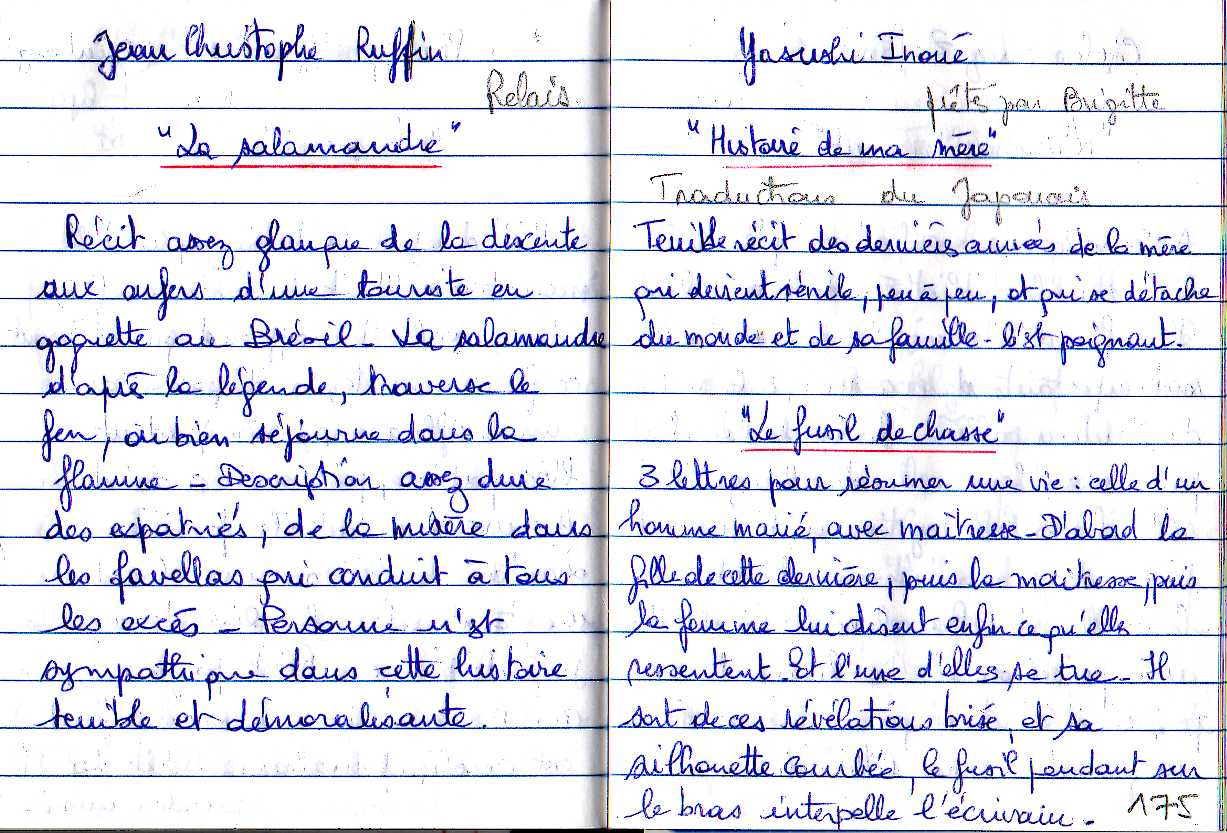 Jean Christophe Ruffin
Relais
"La salamandre"
Récit assez glauque de la descente
aux enfers d'une touriste en
goguette au Brésil - La salamandre
d'après la légende, traverse le
feu, ou bien séjourne dans la
flamme - Description assez dure
des expatriés, de la misère dans
les favellas qui conduit à tous
les excès - Personne n'est
sympathique dans cette histoire
terrible et démoralisante.
Yasushi Inoué
prêtés par Brigitte
"Histoire de ma mère"
Traductions du Japonais
Terrible récit des dernières années de la mère
qui devient sénile, peu à peu, et qui se détache
du monde et de sa famille - C'est poignant.
"Le fusil de chasse"
3 lettres pour résumer une vie : celle d'un
homme marié, avec maîtresse - D'abord la
fille de cette dernière, puis la maîtresse, puis
la femme lui disent enfin ce qu'elles
ressentent. Et l'une d'elles se tue - Il
sort de ces révélations brisé, et sa
silhouette courbée, le fusil pendant sur
le bras interpelle l'écrivain - 175